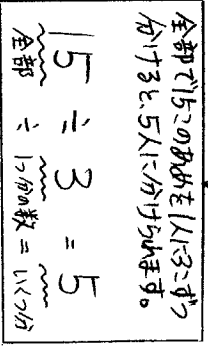 全部で15このあめを1人に3こずつ
分けると、5人に分けられます。
15 ÷ 3 = 5
全部 ÷ 1つ分の数 = いくつ分